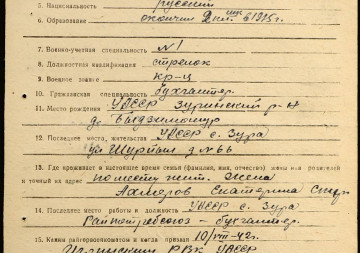 5. Национальность русский
6. Образование окончил 2 кл. в 1915г.
7. Военно-учетная специальность №1
8. Должностная квалификация стрелок
9. Военное звание кр-ц
10. Гражданская специальность бухгалтер
11. Место рождения УАССР Зуринский р-н
12. Последнее место жительства УАССР с. Зура
ул Шурпай д №66
13. Где проживает в настоящее время семья (фамилия, имя, отчество) жены или родителей
и точный их адрес по месту жит. жена
Екатерина
14. Последнее место работы и должность УАССР с. Зура
Райпотребсоюз - бухгалтер.
15. Каким райвоенкоматом и когда призван 10/VIII-42г.
РВК УАССР